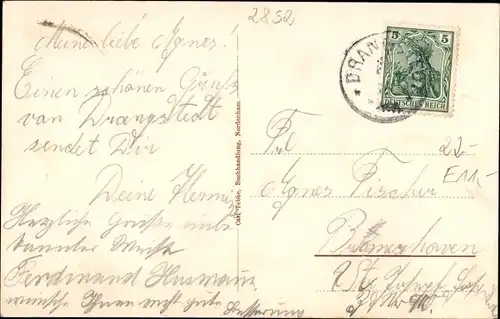 2852
Meine liebe Agnes!
Einen schönen Gruß
von Drangstedt
sendet Dir
Deine Henni
Herzliche Grüße unbe
kannter Weise
Ferdinand Husmann
wünsche Ihnen recht gute Besserung
Buchhandlung, Nordenham.
DRAN
5 5
DEUTSCHES REICH
22-
E11,-
Frl
Agnes Fischer
Bremerhaven